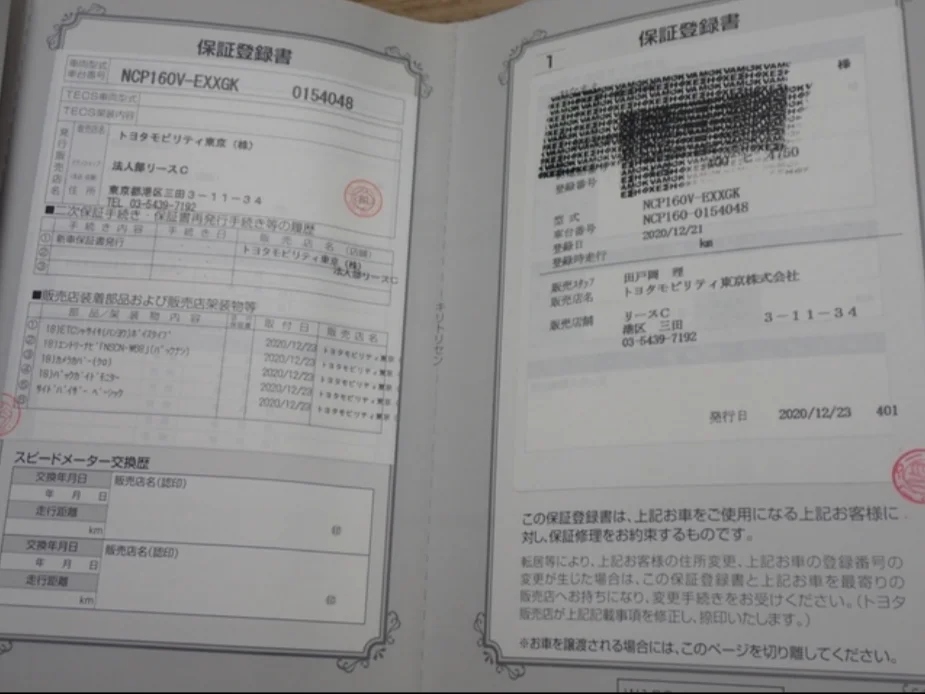 保証登録書
車両型式
車台番号
NCP160V-EXXGK 0154048
TECS車両型式
TECS架装内容
発行販売店名
販売店名
トヨタモビリティ東京(株)
法人部リースC
住所
東京都港区三田3-11-34
TEL 03-5439-7192
■二次保証手続き・保証書再発行手続き等の履歴
手続き内容 手続き日 販売店名(店舗)
① 新車保証書発行 トヨタモビリティ東京(株)
② 法人部リースC
③
■販売店装着部品および販売店架装物等
部品/架装物内容 取付日 販売店名
① 2020/12/23 トヨタモビリティ東京(
② 2020/12/23 トヨタモビリティ東京(
③ 18)カメラカバー(クロ) 2020/12/23 トヨタモビリティ東京(
④ 18)バックガイドモニター 2020/12/23 トヨタモビリティ東京(
⑤ サイドバイザー ベーシック 2020/12/23 トヨタモビリティ東京(
スピードメーター交換歴
交換年月日 販売店名(認印)
年 月 日
走行距離
km 印
交換年月日 販売店名(認印)
年 月 日
走行距離
km 印
キリトリセン
保証登録書
1
様
登録番号
型式 NCP160V-EXXGK
車台番号 NCP160-0154048
登録日 2020/12/21
登録時走行 km
販売スタッフ 田戸岡 理
販売店名 トヨタモビリティ東京株式会社
販売店舗 リースC
港区 三田 3-11-34
03-5439-7192
発行日 2020/12/23 401
この保証登録書は、上記お車をご使用になる上記お客様に
対し、保証修理をお約束するものです。
転居等により、上記お客様の住所変更、上記お車の登録番号の
変更が生じた場合は、この保証登録書と上記お車を最寄りの
販売店へお持ちになり、変更手続きをお受けください。(トヨタ
販売店が上記記載事項を修正し、捺印いたします。)
※お車を譲渡される場合には、このページを切り離してください。